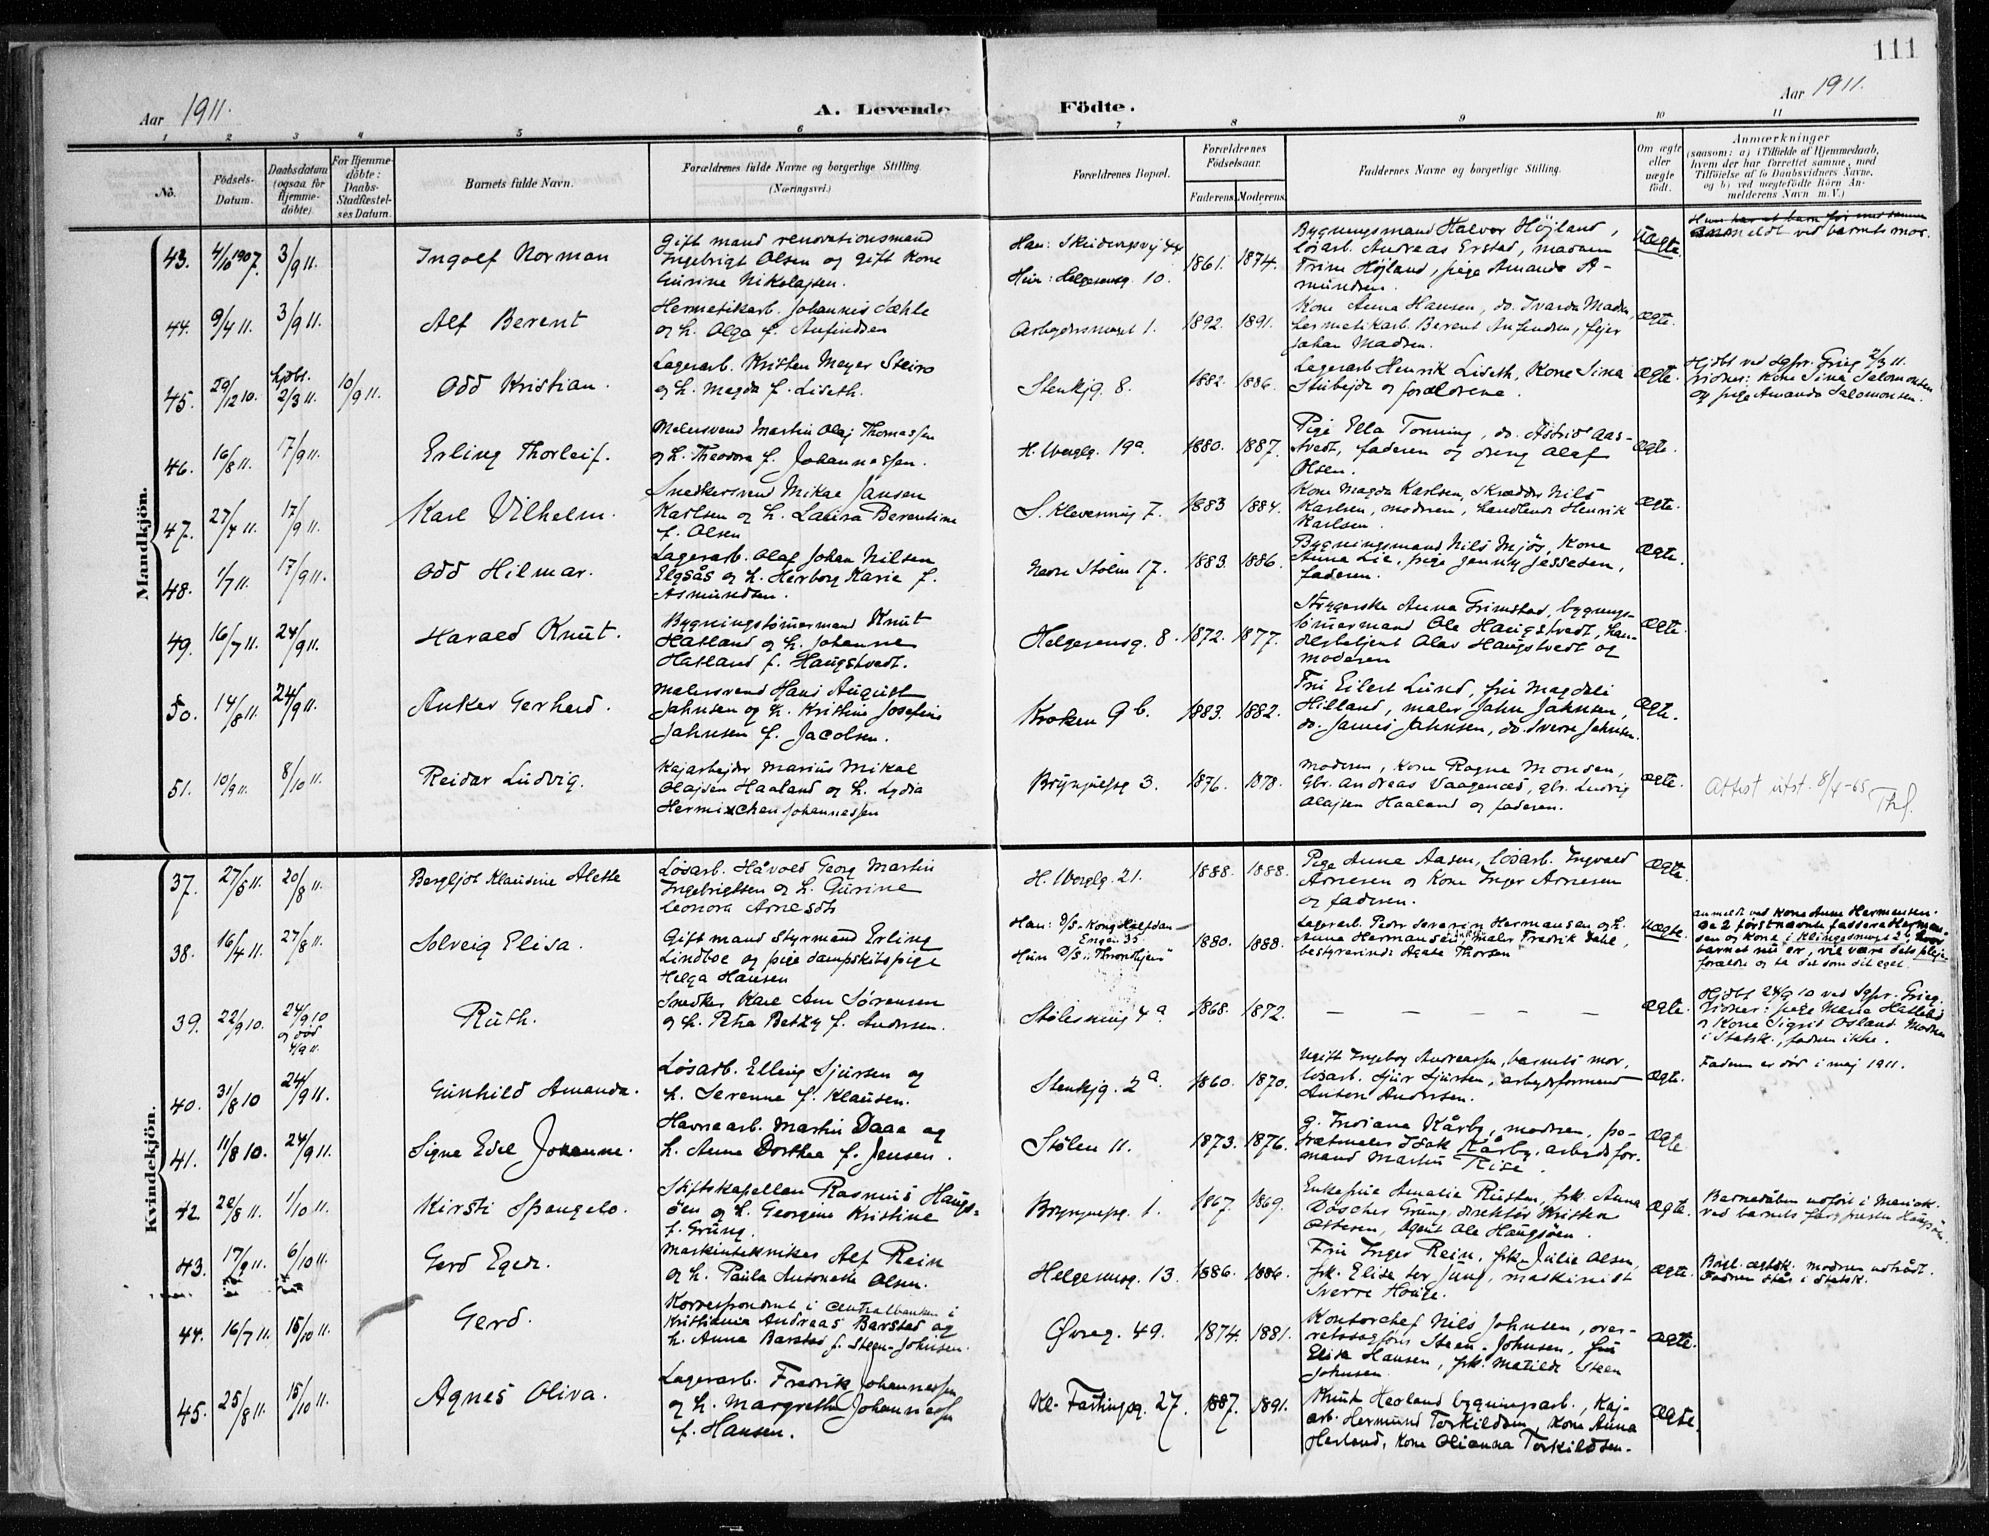 111
Aar 1911.
A. Levende Födte.
Aar 1911.
1 2 3 4 5 6 7 8 9 10 11
No.
Födsels-
Datum.
Daabsdatum
(ogsaa for
Hjemme-
döbte).
For Hjemme-
döbte:
Daabs-
Stadfæstel-
ses Datum.
Barnets fulde Navn.
Forældrenes fulde Navne og borgerlige Stilling.
(Næringsvei.)
Forældrenes Bopæl.
Forældrenes
Födselsaar.
Faderens. Moderens.
Faddernes Navne og borgerlige Stilling.
Om ægte
eller
uægte
födt.
Anmærkninger
(saasom: a) i Tilfælde af Hjemmedaab,
hvem der har forrettet samme, med
Tilföielse af to Daabsvidners Navne,
og b) ved uægtefödte Börn An-
melderens Navn m. V.)
Mandkjön.
43. 4/10 1907. 3/9 11. Ingolf Norman
Gift mand renovationsmand
Ingebrigt Olsen og gift kone
Gurine Nikolajsen.
Han: 44
Hun: Helgesensg. 10.
1861. 1874.
Bygningsmand Halvor Höjland,
lösarb. Andreas Erstad, madam
Trine Höjland, pige Amanda A-
mundsen.
Uægte.
meldt ved barnets mor.
44. 9/4 11. 3/9 11. Alf Berent
Hermetikarb. Johannes Sæhle
og h. Olga f. Anfindsen
Arbeidersmuset 1. 1892. 1891.
Kone Anna Hansen, do. Madsen
hermetikarb. Berent Anfindsen, fejer
Johan Madsen.
Ægte.
45. 29/12 10. hjdbt. 2/3 11. 10/9 11. Odd Kristian.
Lagerarb. Kristen Meyer Steiro
og h. Magda f. Liseth.
Stenkjg. 8. 1882. 1886.
Lagerarb Henrik Liseth, Kone Sina
Stubejde og forældrene.
Ægte.
Hjdbt ved sgpr. Grieg 2/3 11.
Vidner: Kone Sina Salomonsen
og pige Amanda Salomonsen.
46. 16/8 11. 17/9 11. Erling Thorleif.
Malersvend Martin Olaj Thomassen
og h. Theodora f. Johannessen.
H. Wergelg. 19a. 1880. 1887.
Pige Ella Tonning, do. Astrid Aas-
tvedt, faderen og dreng Olaf
Olsen.
Ægte.
47. 27/4 11. 17/9 11. Karl Vilhelm.
Snedkersvend Mikal Jansen
Karlsen og h. Laura Berentine
f. Olsen
S. Klevesmug 7. 1883 1884.
Kone Magda Karlsen, Skrædder Nils
Karlsen, moderen, handlende Henrik
Karlsen.
Ægte.
48. 1/7 11. 17/9 11. Odd Hilmar.
Lagerarb. Olaf Johan Nilsen
Elgsås og h. Herborg Karie f.
Asmundsen.
Nedre Stølen 17. 1883. 1886.
Bygningsmand Nils Mjös, Kone
Anna Lie, pige Jenny Jessesen,
faderen.
Ægte.
49. 16/7 11. 24/9 11. Harald Knut.
Bygningstömermand Knut
Hatland og h. Johanne
Hatland f. Haugstvedt.
Helgesensg. 8. 1872. 1877.
Strygerske Anna Grimstad, bygnings-
tömermand Ole Haugstvedt, han-
delsbetjent Olav Haugstvedt og
moderen
Ægte.
50. 14/8 11. 24/9 11. Anker Gerhard.
Malersvend Hans August
Jahnsen og h. Kristine Josefine
Jahnsen f. Jacobsen.
Kroken 9 b. 1883. 1882.
Fru Eilert Lund, fru Magdali
Hilland, maler Jahn Jahnsen,
do. James Jahnsen, do. Sverre Jahnsen.
Ægte.
51. 10/9 11. 8/10 11. Reidar Ludvig.
Kajarbejder Marius Mikal
Olajsen Haaland og h. Lydia
Johannessen
3. 1876. 1878.
Moderen, Kone Ragna Monsen,
gbr. Andreas Vaagenæs, gbr. Ludvig
Olajsen Haaland og faderen.
Ægte.
Attest utst. 8/4-65
Kvindekjön.
37. 27/5 11. 20/8 11. Bergljot Klaudine Alette
Lösarb. Håvold Georg Martin
Ingebrigtsen og h. Gurine
Leonora Arnesdtr
H. Wergelg. 21. 1888. 1888.
Pige Anna Aasen, lösarb. Ingvald
Arnesen og Kone Inger Arnesen
og faderen.
Ægte.
38. 16/4 11. 27/8 11. Solveig Elisa.
Gift mand styrmand Erling
Lindboe og pige dampskibspige
Helga Hansen
Han: D/S. Kong Halfdan
Engen 35
Hun D/S. Trondhjem
1880. 1888.
Lagerarb. Peder Severin Hermansen og h.
Anna Hermansen, maler Fredrik Dahl,
bestyrerinde Agate Thorsen
Uægte.
anmeldt ved Kone Anna Hermansen.
De 2 förstnævnte faddere Herman-
sen og Kone i Klingesmuget 2b, hvor
barnet nu er, vil være dets pleje-
forældre og ta det som sit eget.
39. 22/9 10. 24/9 10 og død 4/9 11. Ruth.
Snedker Karl Sörensen
og h. Petra Betzy f. Andersen.
Stölesmug 4a. 1868. 1872.
— — — — —
Ægte.
Hjdbt 24/9 10 ved sgpr. Grieg.
Vidner: pige Maria Hatlebø
og Kone Sigrid Osland. Moderen
i Statsk., faderen ikke.
40. 31/8 10 24/9 11. Gunhild Amanda.
Lösarb. Elling Sjursen og
h. Serenne f. Klausen.
Stenkjg. 2a. 1860. 1870.
Ugift Ingeborg Andreassen, barnets mor,
lösarb. Sjur Sjursen, arbejdsformand
Anton Andersen.
Ægte.
Faderen er död i maj 1911.
41. 11/8 10. 24/9 11. Signe Edel Johanne.
Havnearb. Martin Daae og
h. Anne Dorthea f. Jensen.
Stölen 11. 1873. 1876.
g. Indiana Kårby, moderen, po-
rætmaler Isak Kårby, arbejdsfor-
mand Martin Risa.
Ægte
42. 22/8 11. 1/10 11. Kirsti Spangelo.
Stiftskapellan Rasmus Haugs-
öen og h. Georgine Kristine
f. Grung.
1. 1867. 1869.
Enkefrue Amalie Rusten, frk. Anna
Döscher Grung, direktör Kristen
Ottesen, Agent Ole Haugsöen.
Ægte.
Barnedåben udfört i Mariak.
ved barnets far, presten Haugsöen.
43. 17/9 11. 6/10 11. Gerd Egede.
Maskintekniker Alf Rein
og h. Paula Antonette Olsen.
Helgesensg. 13. 1886. 1886.
Fru Inger Rein, frk. Julie Olsen,
frk. Elise ter Jung, maskinist
Sverre Hauge.
Ægte.
Borgl. ægtsk. moderen udtrådt.
Faderen står i Statsk.
44. 16/7 11. 15/10 11. Gerd.
Korrespondent i Centralbanken i
Kristiania Andreas Barstad og
h. Anna Barstad f. Steen-Johnsen.
Øvreg. 49. 1874. 1881.
Kontorchef Nils Johnsen, over-
retssagförer Steen-Johnsen, fru
Elisa Hansen, frk. Matilde Steen
Johnsen.
Ægte.
45. 25/8 11. 15/10 11. Agnes Oliva.
Lagerarb. Fredrik Johannessen
og h. Margrethe Johannessen
f. Hansen.
Kl. Fastingsg. 27. 1887. 1891.
Knut Havland bygningsarb., Kaj-
arb. Hermund Torkildsen, Kone Anna
Havland, Kone Olianna Torkildsen.
Ægte.